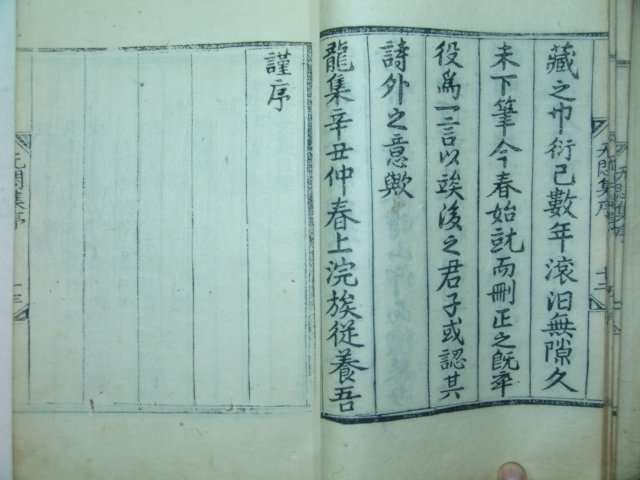 藏之巾衍已數年滾汨無隙久
未下筆今春始就而刪正之旣卒
役爲一言以竢後之君子或認其
詩外之意歟
龍集辛丑仲春上浣族從養吾
謹序
无悶集序